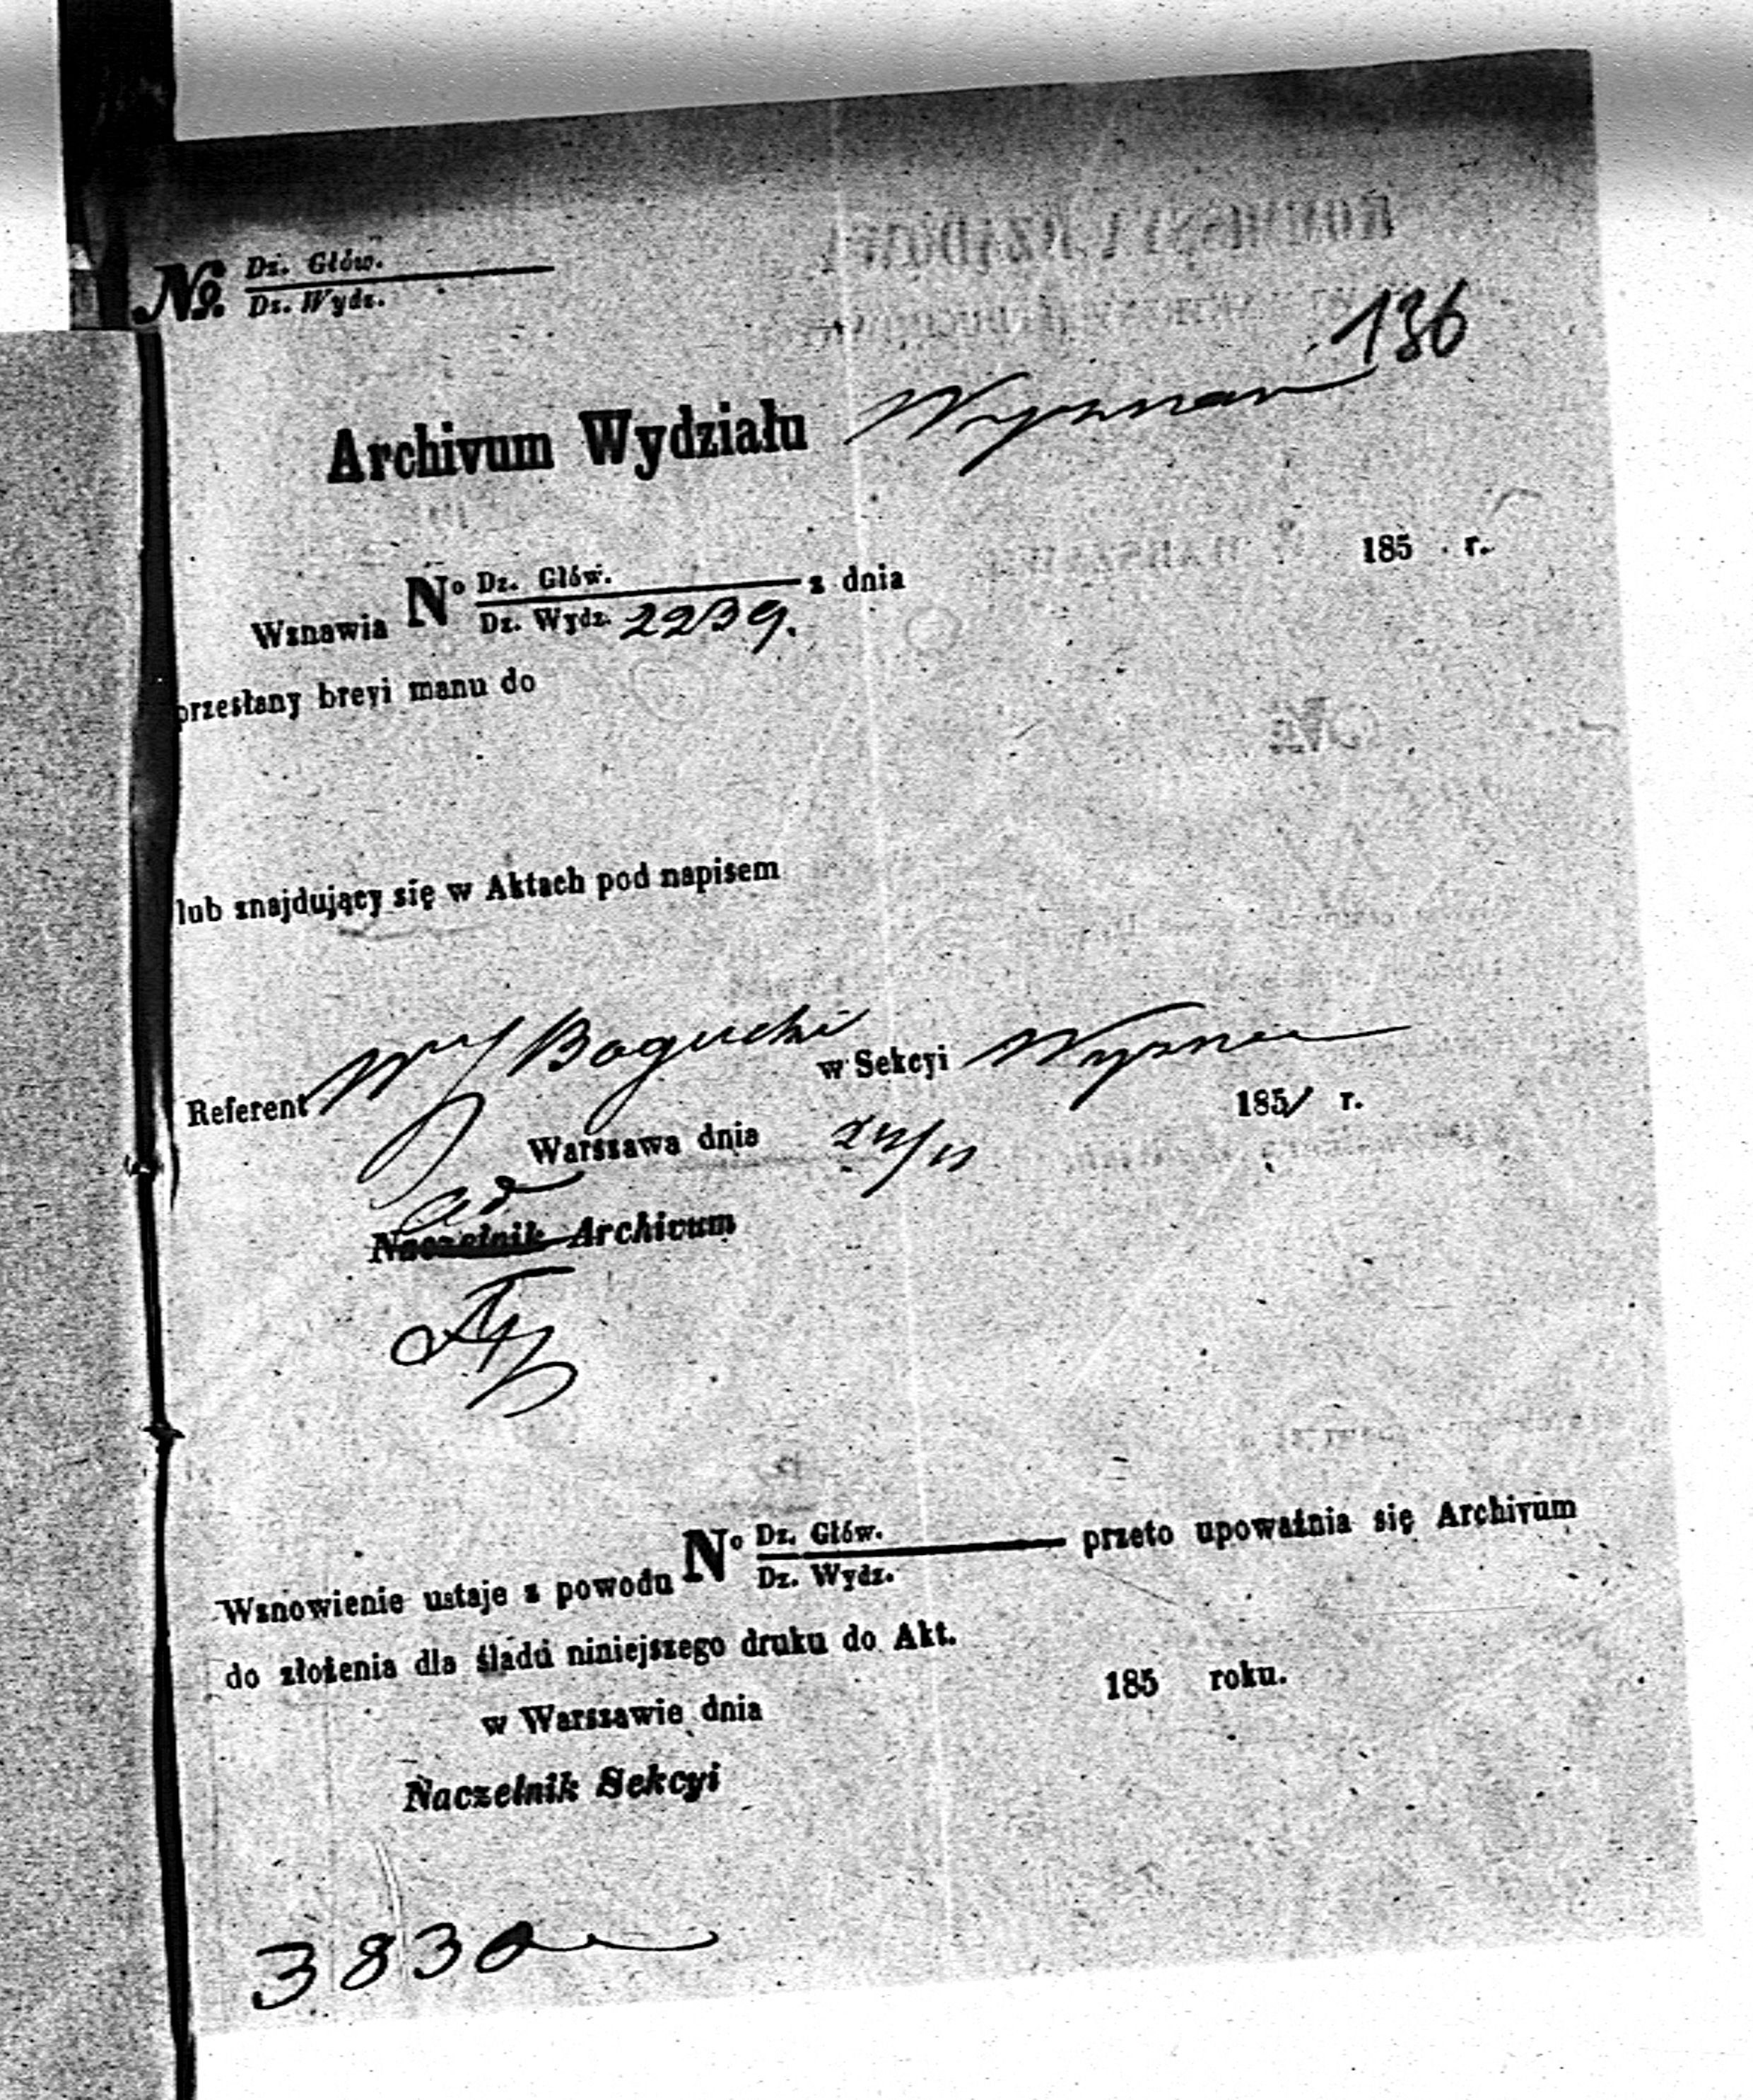 136
№ Dz. Głów.
Dz. Wydz.
Archivum Wydziału Wyznan
Wznawia No Dz. Głów. z dnia 185 r.
Dz. Wydz. 2239.
przesłany brevi manu do
lub znajdujący się w Aktach pod napisem
Referent Bogucki w Sekcyi Wyznan
Warszawa dnia 185 r.
Naczelnik Archivum
Wznowienie ustaje z powodu No Dz. Głów. przeto upoważnia się Archivum
Dz. Wydz.
do złożenia dla śladu niniejszego druku do Akt.
w Warszawie dnia 185 roku.
Naczelnik Sekcyi
3830